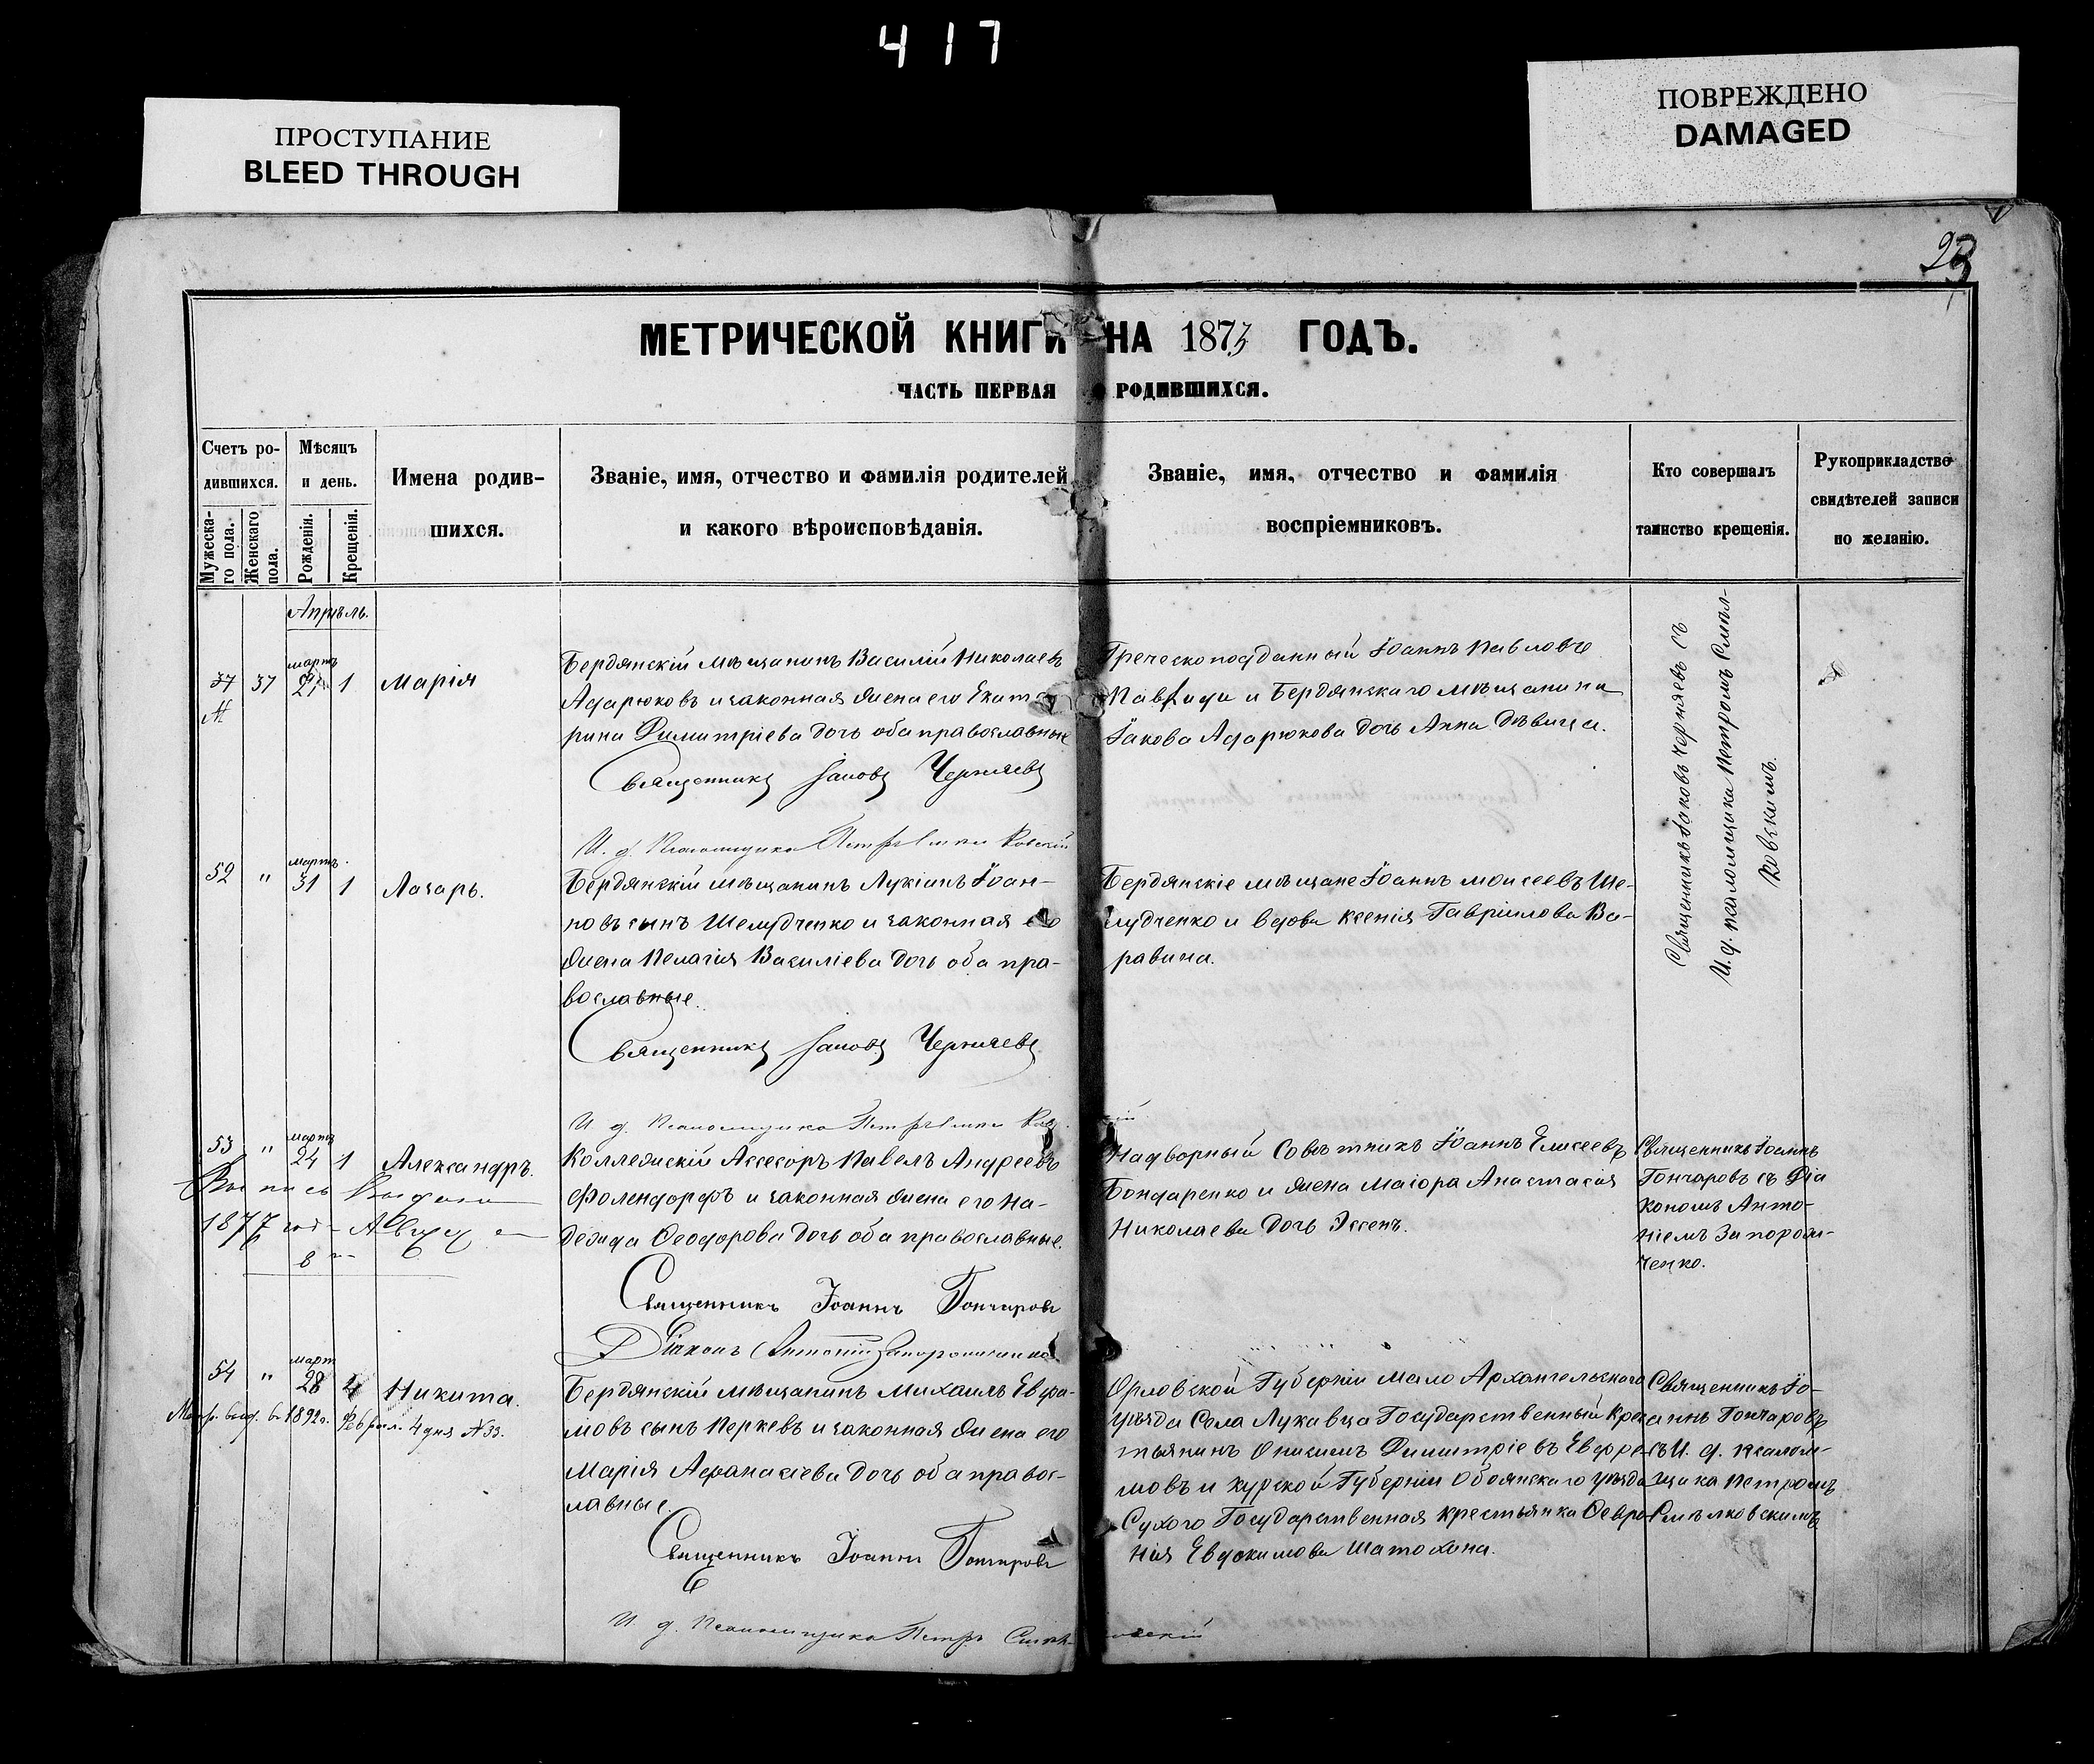 417
ПРОСТУПАНИЕ
BLEED THROUGH
ПОВРЕЖДЕНО
DAMAGED
23
МЕТРИЧЕСКОЙ КНИГИ НА 1873 ГОДЪ.
ЧАСТЬ ПЕРВАЯ О РОДИВШИХСЯ.
Счетъ ро-
дившихся.
Мужеска-
го пола.
Женскаго
пола.
Мѣсяцъ
и день.
Рожденія.
Крещенія.
Имена родив-
шихся.
Званіе, имя, отчество и фамилія родителей
и какого вѣроисповѣданія.
Званіе, имя, отчество и фамилія
воспріемниковъ.
Кто совершалъ
таинство крещенія.
Рукоприкладство
свидѣтелей записи
по желанію.
Апрѣль.
37
мартъ
1
Марія
Бердянскій мѣщанинъ Василій Николаевъ
Адарюковъ и законная жена его Екате-
рина Димитріева дочь оба православные
Священникъ Іаковъ Черняевъ
И. д. Псаломщика Петръ Смѣлковскій
Греческоподданный Іоаннъ Павловъ
и Бердянскаго мѣщанина
Іакова Адарюкова дочь Анна дѣвица.
Священникъ Іаковъ Черняевъ съ
И. д. псаломщика Петромъ Смѣл-
ковскимъ.
52 " мартъ
31 1 Лазарь.
Бердянскій мѣщанинъ Лукіанъ Іоан-
новъ сынъ Шелудченко и законная его
жена Пелагія Василіева дочь оба пра-
вославные.
Священникъ Іаковъ Черняевъ
И. д. Псаломщика Петръ Смѣлковскій
Бердянскіе мѣщане Іоаннъ Моисеевъ Ше-
лудченко и вдова Ксенія Гавріилова Ва-
равина.
53 " мартъ
24 1 Александръ.
Выпись выдана
1877 год Август
8
Коллежскій Ассесоръ Павелъ Андреевъ
Фолендорфъ и законная жена его На-
дежда Ѳеодорова дочь оба православные.
Священникъ Іоаннъ Гончаровъ
Діаконъ Антоній Запорожченко.
Надворный Совѣтникъ Іоаннъ Елисеевъ
Бондаренко и жена Маіора Анастасія
Николаева дочь Эссенъ.
Священникъ Іоаннъ
Гончаровъ съ Діа
кономъ Анто-
ніемъ Запорож-
ченко.
54 " март
28 4 Никита.
Метр. выд. въ 1892 г. Феврал. 4 дня №33.
Бердянскій мѣщанинъ Михаилъ Евфи-
мовъ сынъ Перкевъ и законная жена его
Марія Аѳанасіева дочь оба правос-
лавные.
Священникъ Іоаннъ Гончаровъ
И. д. Псаломщика Петръ Смѣлковскій
Орловской Губерніи Мало Архангельскаго
уѣзда Села Лукавца Государственный Крес
тьянинъ Онисимъ Димитріевъ Евфре-
мовъ и Курской Губерніи Обоянскаго уѣзда
Сухого Государственная крестьянка Ѳевро-
нія Евдокимова Шатохина.
Священникъ Іо-
аннъ Гончаровъ
съ И. д. псалом-
щика Петромъ
Смѣлковскимъ